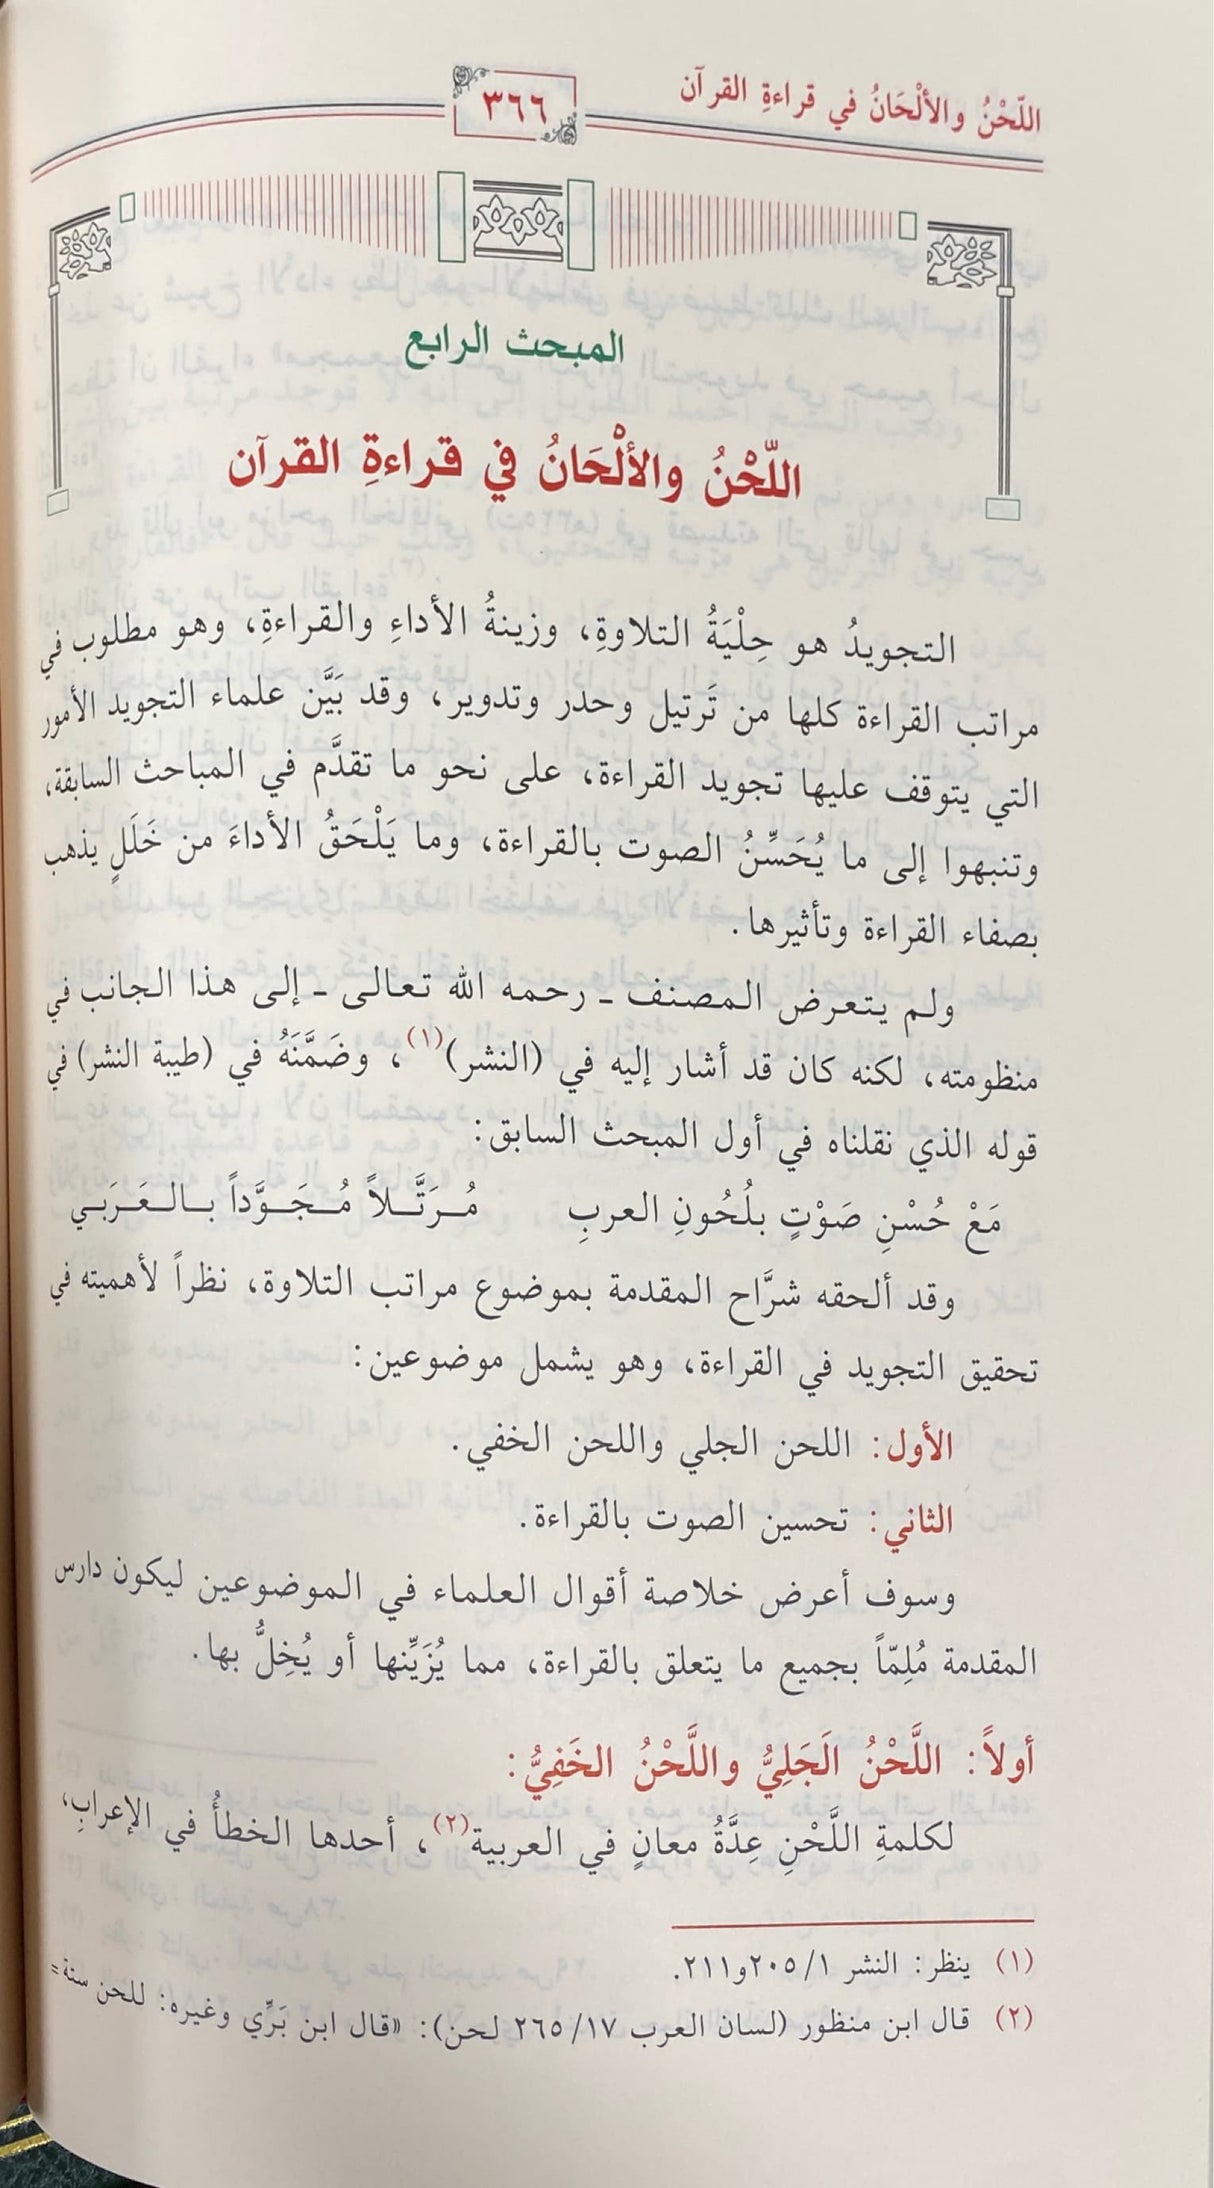 اللّحْنُ والأَلْحَانُ في قراءةِ القرآن
٣٦٦
المبحث الرابع
اللّحْنُ والأَلْحَانُ في قراءةِ القرآن
التجويدُ هو حِلْيَةُ التلاوةِ، وزينةُ الأداءِ والقراءةِ، وهو مطلوب في
مراتب القراءة كلها من تَرتيل وحدر وتدوير، وقد بَيَّن علماء التجويد الأمور
التي يتوقف عليها تجويد القراءة، على نحو ما تقدَّم في المباحث السابقة،
وتنبهوا إلى ما يُحَسِّنُ الصوت بالقراءة، وما يَلْحَقُ الأداءَ من خَلَلٍ يذهب
بصفاء القراءة وتأثيرها.
ولم يتعرض المصنف ـ رحمه الله تعالى ـ إلى هذا الجانب في
منظومته، لكنه كان قد أشار إليه في (النشر)(١)، وضَمَّنَهُ في (طيبة النشر) في
قوله الذي نقلناه في أول المبحث السابق:
مَعْ حُسْنِ صَوْتٍ بلُحُونِ العربِ مُـرَتَّـلاً مُـجَـوَّداً بـالـعَـرَبـي
وقد ألحقه شرَّاح المقدمة بموضوع مراتب التلاوة، نظراً لأهميته في
تحقيق التجويد في القراءة، وهو يشمل موضوعين:
الأول: اللحن الجلي واللحن الخفي.
الثاني: تحسين الصوت بالقراءة.
وسوف أعرض خلاصة أقوال العلماء في الموضوعين ليكون دارس
المقدمة مُلِمّاً بجميع ما يتعلق بالقراءة، مما يُزَيِّنها أو يُخِلُّ بها.
أولاً: اللَّحْنُ الَجَلِيُّ واللَّحْنُ الخَفِيُّ:
لكلمةِ اللَّحْنِ عِدَّةُ معانٍ في العربية(٢)، أحدها الخطأُ في الإعرابِ،
(١) ينظر: النشر ٢٠٥/١ و٢١١.
(٢) قال ابن منظور (لسان العرب ٢٦٥/١٧ لحن): «قال ابن بَرِّي وغيره: للحن ستة =